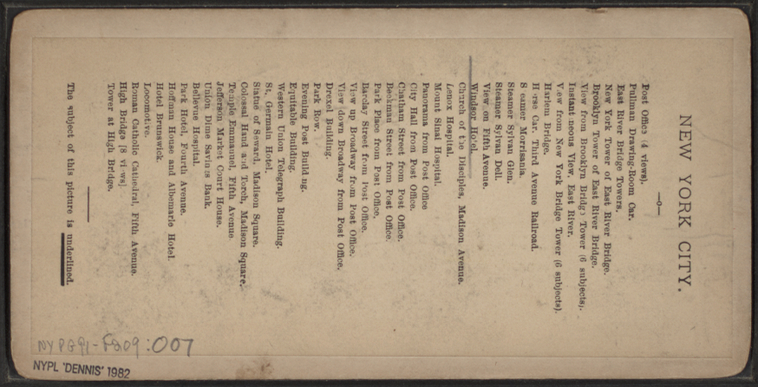 NEW YORK CITY.
Post Office (4 views).
Pullman Drawing-Room Car.
East River Bridge Towers.
New York Tower of East River Bridge.
Brooklyn Tower of East River Bridge.
View from Brooklyn Bridge Tower (6 subjects).
Instantaneous View, East River.
View from New York Bridge Tower (6 subjects).
Harlem Bridge.
Horse Car, Third Avenue Railroad.
Steamer Morrisania.
Steamer Sylvan Glen.
Steamer Sylvan Dell.
View on Fifth Avenue.
Windsor Hotel.
Church of the Disciples, Madison Avenue.
Lenox Hospital.
Mount Sinai Hospital.
Panorama from Post Office
City Hall from Post Office.
Chatham Street from Post Office.
Beekman Street from Post Office
Park Place from Post Office.
Barclay Street from Post Office.
View up Broadway from Post Office.
View down Broadway from Post Office.
Drexel Building.
Park Row.
Evening Post Building.
Equitable Building.
Western Union Telegraph Building.
St. Germain Hotel.
Statue of Seward, Madison Square.
Colossal Hand and Torch, Madison Square.
Temple Emmanuel, Fifth Avenue
Jefferson Market Court House.
Union Dime Savings Bank.
Bellevue Hospital.
Park Hotel, Fourth Avenue.
Hoffman House and Albemarle Hotel.
Hotel Brunswick.
Locomotive.
Roman Catholic Cathedral, Fifth Avenue.
High Bridge [8 views].
Tower at High Bridge.
The subject of this picture is underlined.
NYPG91-F209:007
NYPL 'DENNIS' 1982